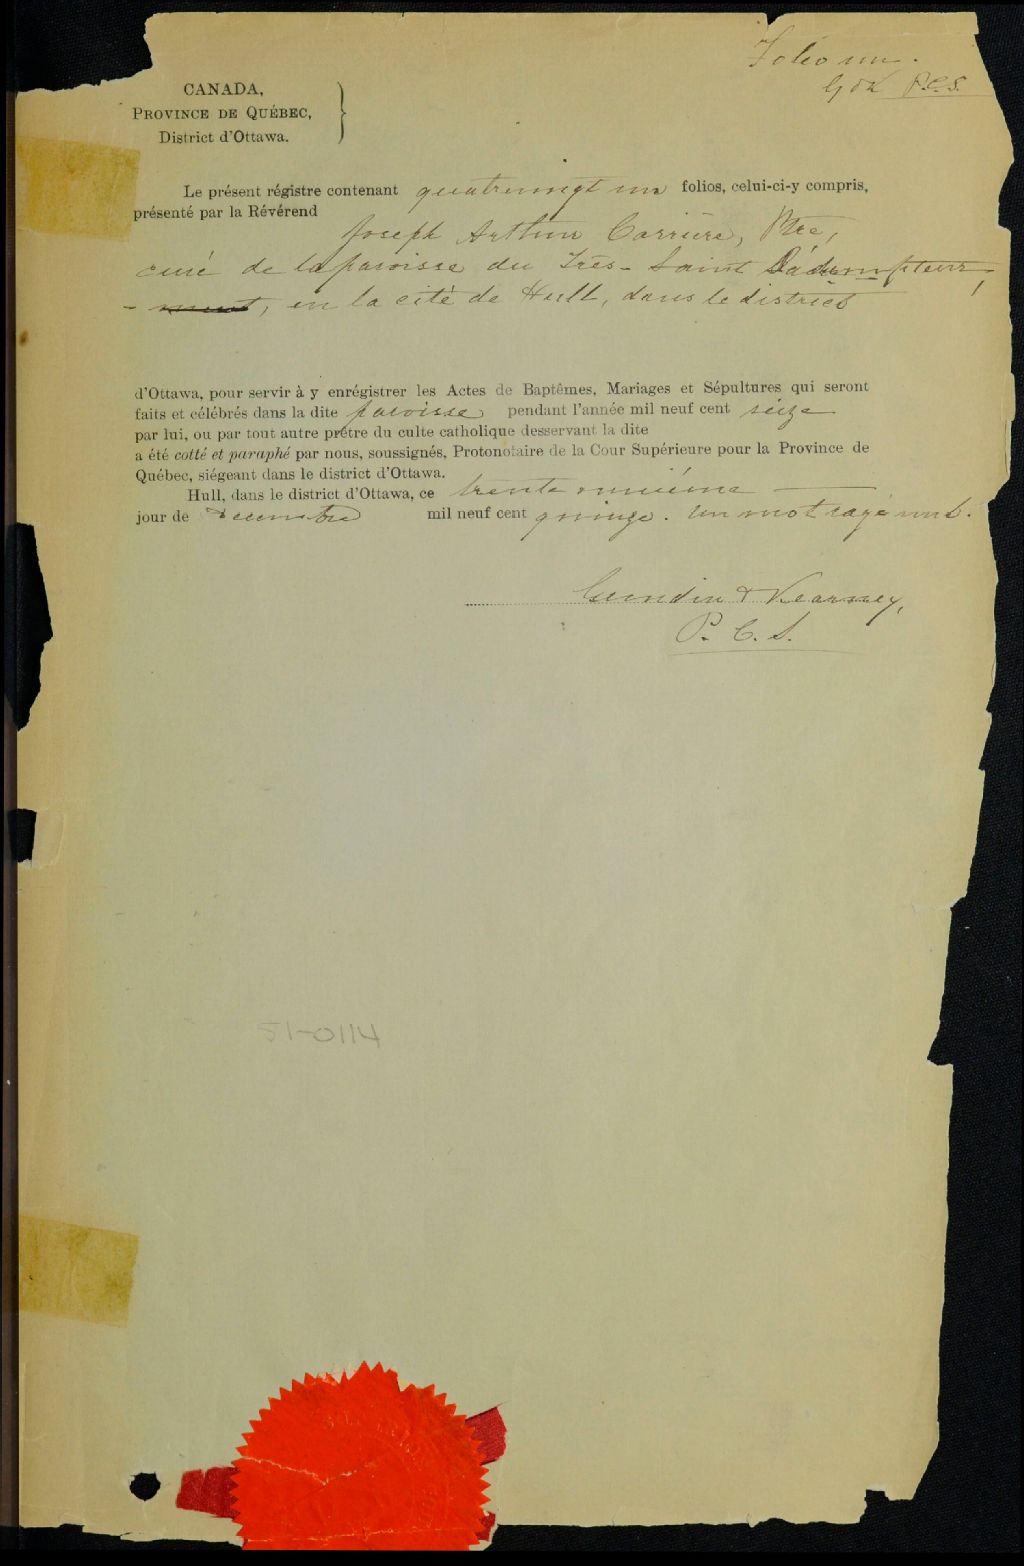 Folio un.
G & K P.C.S.
CANADA,
PROVINCE DE QUÉBEC,
District d'Ottawa.
Le présent régistre contenant quatrevingt un folios, celui-ci-y compris,
présenté par la Révérend
Joseph Arthur Carrière, Ptre,
curé de la paroisse du Très-Saint Rédempteur,
en la cité de Hull, dans le district
d'Ottawa, pour servir à y enrégistrer les Actes de Baptêmes, Mariages et Sépultures qui seront
faits et célébrés dans la dite paroisse pendant l'année mil neuf cent seize
par lui, ou par tout autre prêtre du culte catholique desservant la dite
a été cotté et paraphé par nous, soussignés, Protonotaire de la Cour Supérieure pour la Province de
Québec, siégeant dans le district d'Ottawa.
Hull, dans le district d'Ottawa, ce trente
jour de decembre mil neuf cent quinze. Un mot rayé nul.
& Kearney,
P. C. S.
51-0114